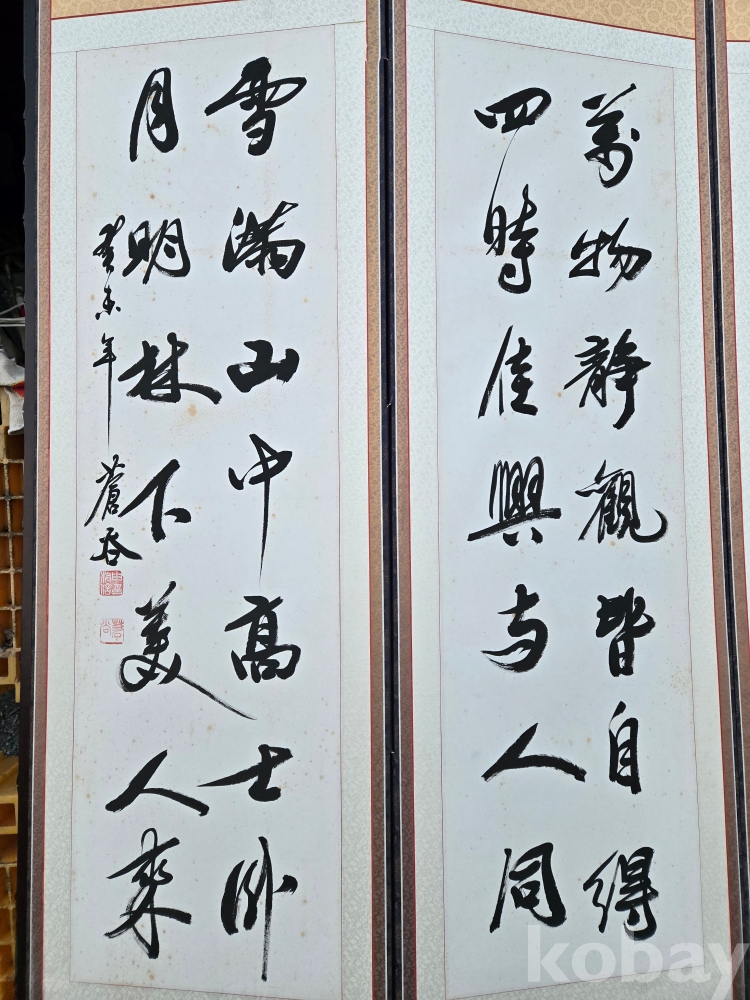 萬物靜觀皆自得
四時佳興与人同
雪滿山中高士卧
月明林下美人來
年 蒼
kobay